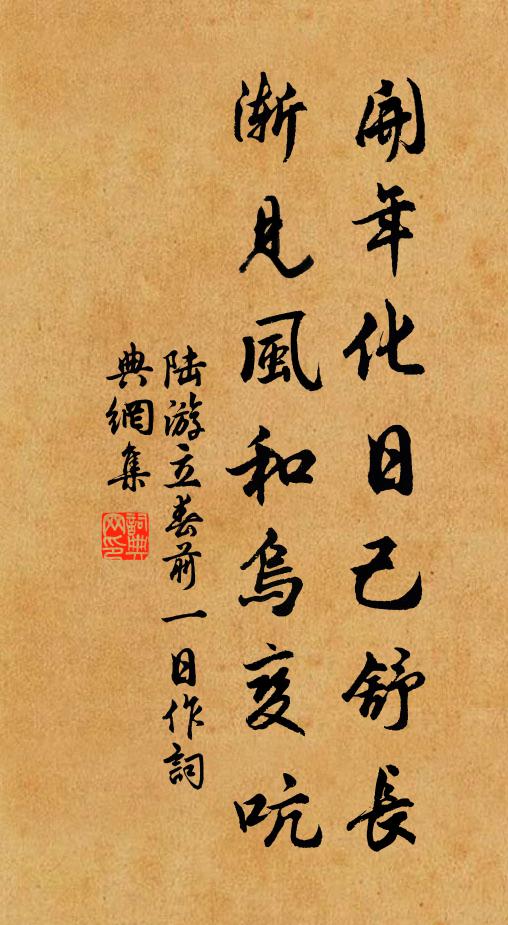 開年化日已舒長
漸見風和烏变吭
陆游立春前一日作詞
典網集
詞典
网印